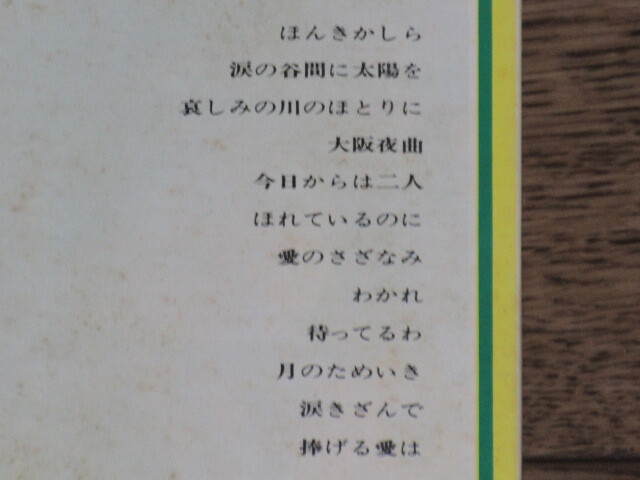 ほんきかしら
涙の谷間に太陽を
哀しみの川のほとりに
大阪夜曲
今日からは二人
ほれているのに
愛のさざなみ
わかれ
待ってるわ
月のためいき
涙きざんで
捧げる愛は